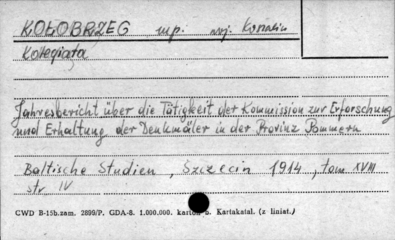 KOŁOBRZEG mp. woj. Koszalin
Kolegiata
Jahresbericht über die Tätigkeit der Kommission zur Erforschung
und Erhaltung der Denkmäler in der Provinz Pommern
Baltische Studien, Szczecin 1914, tom XVIII
str. IV
CWD B-15b.zam. 2899/P. GDA-8. 1.000.000. karton b. Kartakatal. (z liniat.)